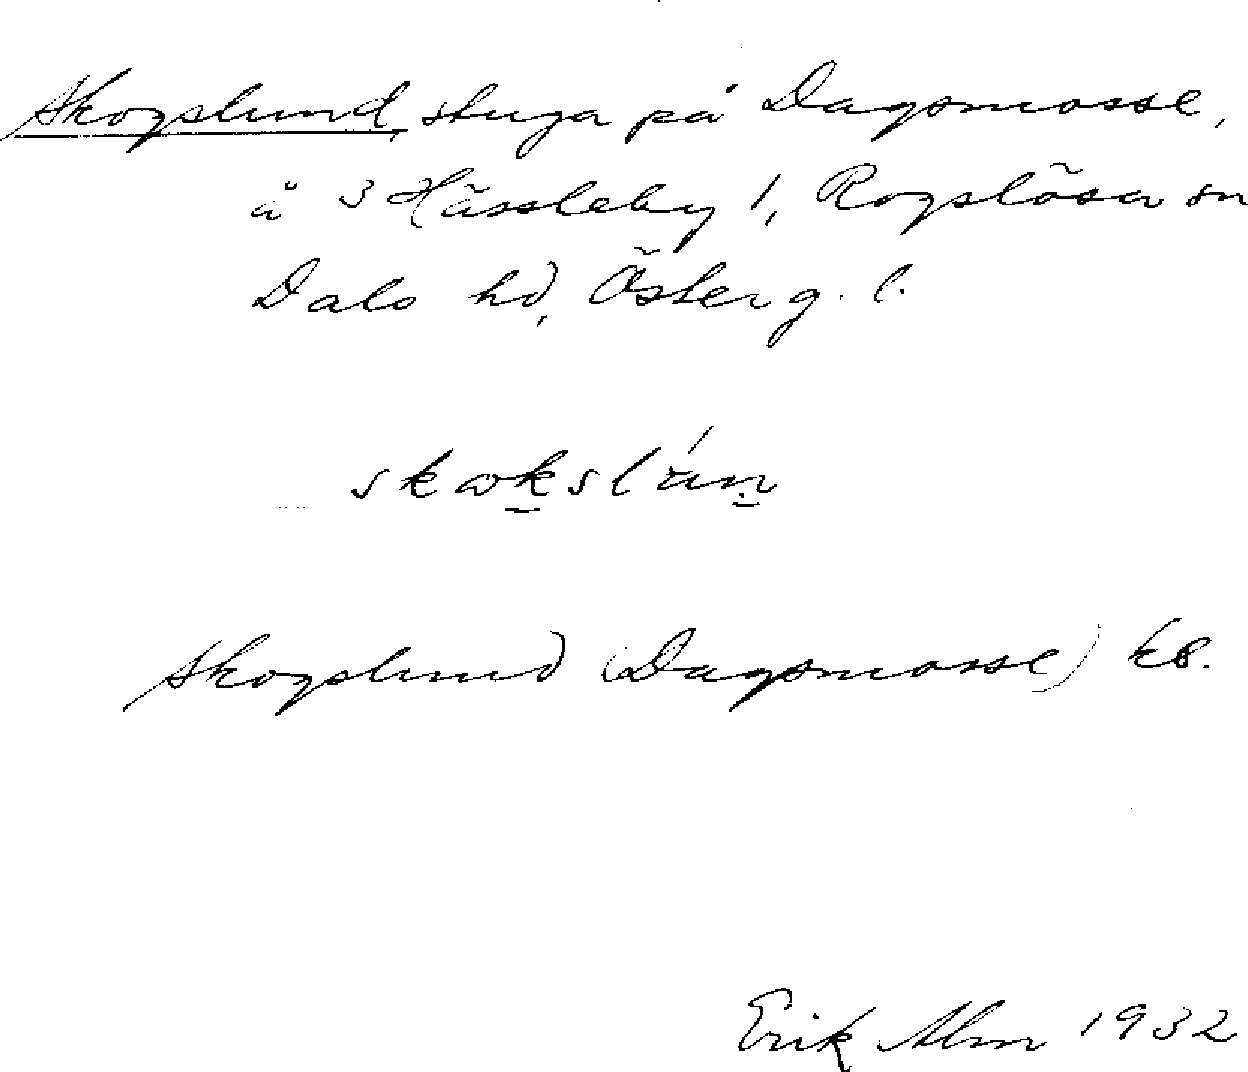 Skogslund, stuga på Dagsmosse,
å 3 Hässleby 1, Rogslösa sn
Dals hd, Österg. l.
Skogslund (Dagsmosse) kb.
Erik Alm 1932